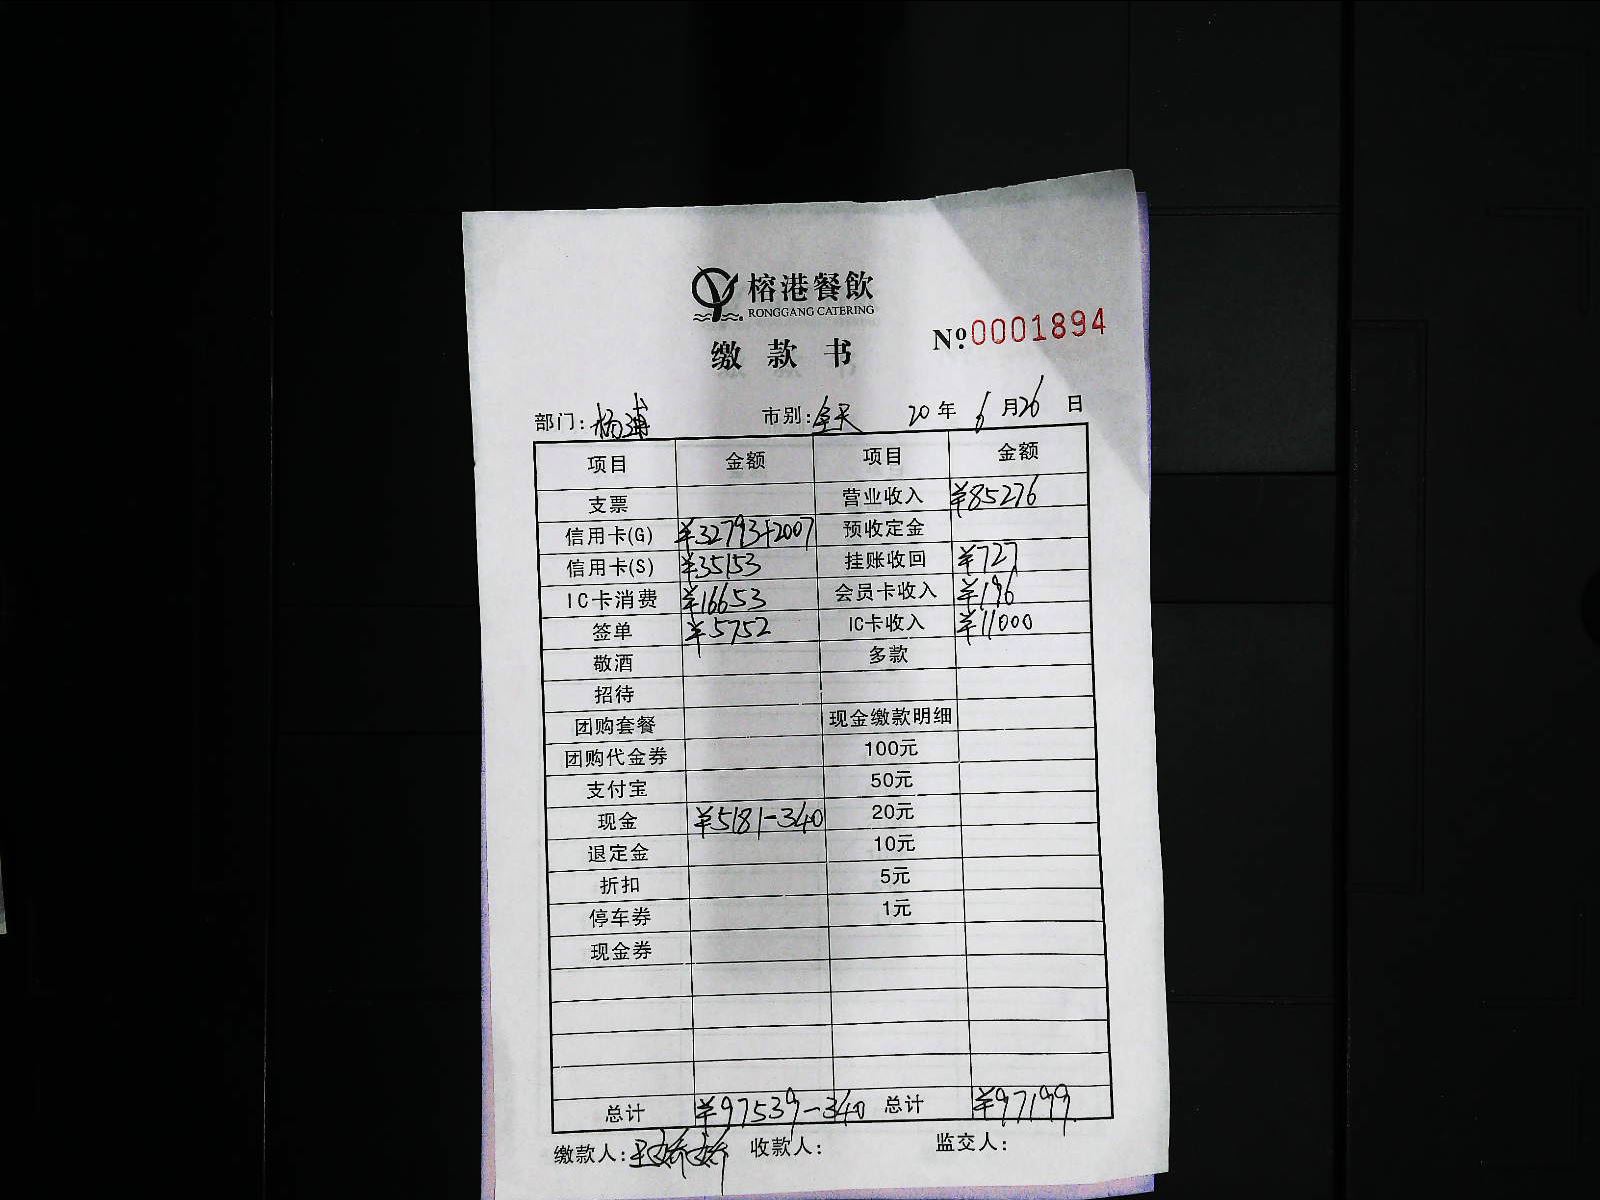 榕港餐飲
RONGGANG CATERING
缴款书
№0001894
部门:杨浦 市别:全天 20年6月26日
项目 金额 项目 金额
支票 营业收入 ¥85276
信用卡(G) ¥32793+2007 预收定金
信用卡(S) ¥35153 挂账收回 ¥727
IC卡消费 ¥16653 会员卡收入 ¥196
签单 ¥5752 IC卡收入 ¥11000
敬酒 多款
招待
团购套餐 现金缴款明细
团购代金券 100元
支付宝 50元
现金 ¥5181-340 20元
退定金 10元
折扣 5元
停车券 1元
现金券
总计 ¥97539-340 总计 ¥97199
缴款人:王娇娇 收款人: 监交人: